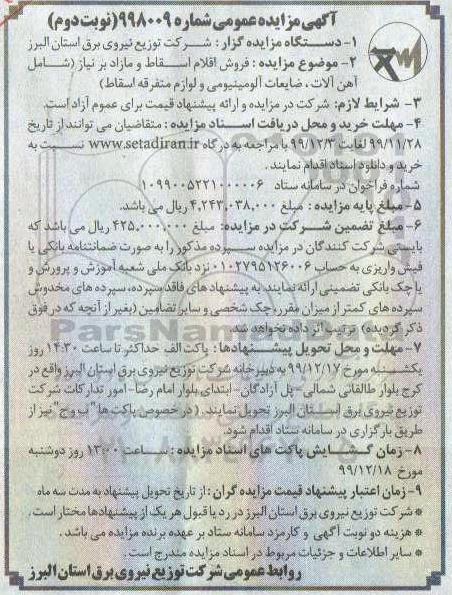 آگهی مزایده عمومی شماره ۹۹۸۰۰۹(نوبت دوم)
۱- دستگاه مزایده گزار: شرکت توزیع نیروی برق استان البرز
۲- موضوع مزایده : فروش اقلام اسقاط و مازاد بر نیاز (شامل
آهن آلات، ضایعات آلومینیومی و لوازم متفرقه اسقاط)
۳- شرایط لازم: شرکت در مزایده و ارائه پیشنهاد قیمت برای عموم آزاد است.
۴- مهلت خرید و محل دریافت اسناد مزایده : متقاضیان می توانند از تاریخ
۹۹/۱۱/۲۸ لغایت ۹۹/۱۲/۳ با مراجعه به درگاه www.setadiran.ir نسبت به
خرید و دانلود اسناد اقدام نمایند .
شماره فراخوان در سامانه ستاد ۱۰۹۹۰۰۵۲۲۱۰۰۰۰۰۶
۵- مبلغ پایه مزایده : مبلغ ۴.۲۴۳.۰۳۸.۰۰۰ ریال می باشد.
۶- مبلغ تضمین شرکت در مزایده: مبلغ ۴۲۵.۰۰۰.۰۰۰ ریال می باشد که
بایستی شرکت کنندگان در مزایده سپرده مذکور را به صورت ضمانتنامه بانکی یا
فیش واریزی به حساب ۰۱۰۲۷۹۵۱۲۶۰۰۶ نزد بانک ملی شعبه آموزش و پرورش و
یا چک بانکی تضمینی ارائه نمایند. به پیشنهادهای فاقد سپرده، سپرده های مخدوش
سپرده های کمتر از میزان مقرر، چک شخصی و سایر تضامین (بغیر از آنچه که در فوق
ذکر گردیده) ترتیب اثر داده نخواهد شد.
۷- مهلت و محل تحویل پیشنهادها : پاکت الف حداکثر تا ساعت ۱۴:۳۰ روز
یکشنبه مورخ ۹۹/۱۲/۱۷ به دبیرخانه شرکت توزیع نیروی برق استان البرز واقع در
کرج بلوار طالقانی شمالی-پل آزادگان- ابتدای بلوار امام رضا- امور تدارکات شرکت
توزیع نیروی برق استان البرز تحویل نمایند. ( در خصوص پاکت ها "ب وج" نیز از
طریق بارگزاری در سامانه ستاد اقدام شود.
۸- زمان گشایش پاکت های اسناد مزایده : ساعت ۱۳:۰۰ روز دوشنبه
مورخ ۹۹/۱۲/۱۸
۹- زمان اعتبار پیشنهاد قیمت مزایده گران : از تاریخ تحویل پیشنهاد به مدت سه ماه
* شرکت توزیع نیروی برق استان البرز در رد یا قبول هر یک از پیشنهادها مختار است .
* هزینه دو نوبت آگهی و کارمزد سامانه ستاد بر عهده برنده مزایده می باشد .
* سایر اطلاعات و جزئیات مربوط در اسناد مزایده مندرج است .
روابط عمومی شرکت توزیع نیروی برق استان البرز